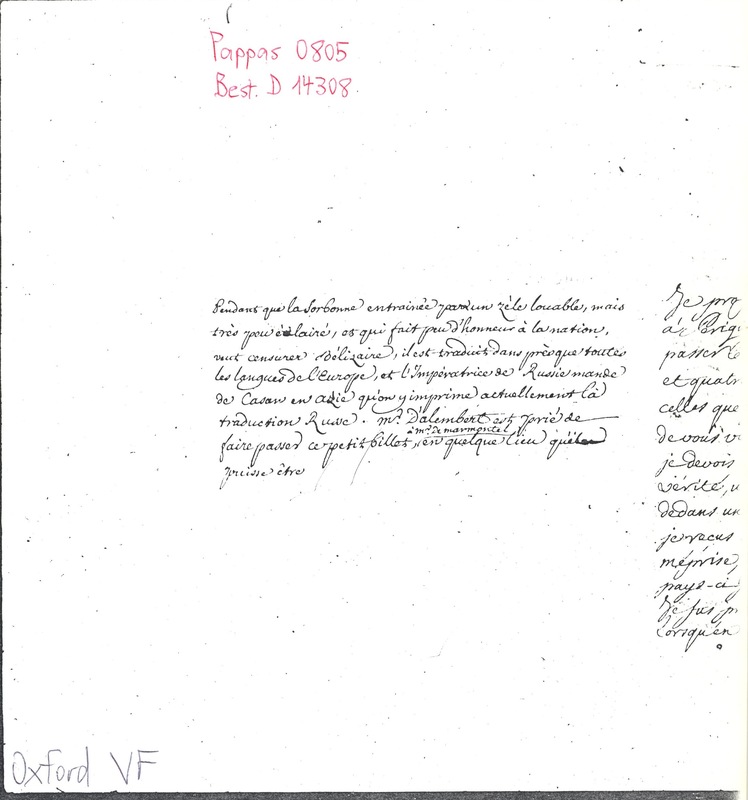 Pappas 0805
Best. D 14308.
Pendant que la Sorbonne entrainée par un zèle louable, mais
très peu éclairé, et qui fait peu d'honneur à la nation,
veut censurer Bélizaire, il est traduit dans presque toutes
les langues de l'Europe, et l'Impératrice de Russie mande
de Casan en asie qu'on y imprime actuellement la
traduction Russe. mr. Dalembert est prié de
à mr. de marmontel
faire passer ce petit billet, en quelque lieu qu'il
puisse être
Je pro
passer
et quatr
celles que
de vous v
je devois
vérité, u
dedans un
je reçus
méprise,
pays-ci
Je fus pr
lorsqu'en
Oxford VF